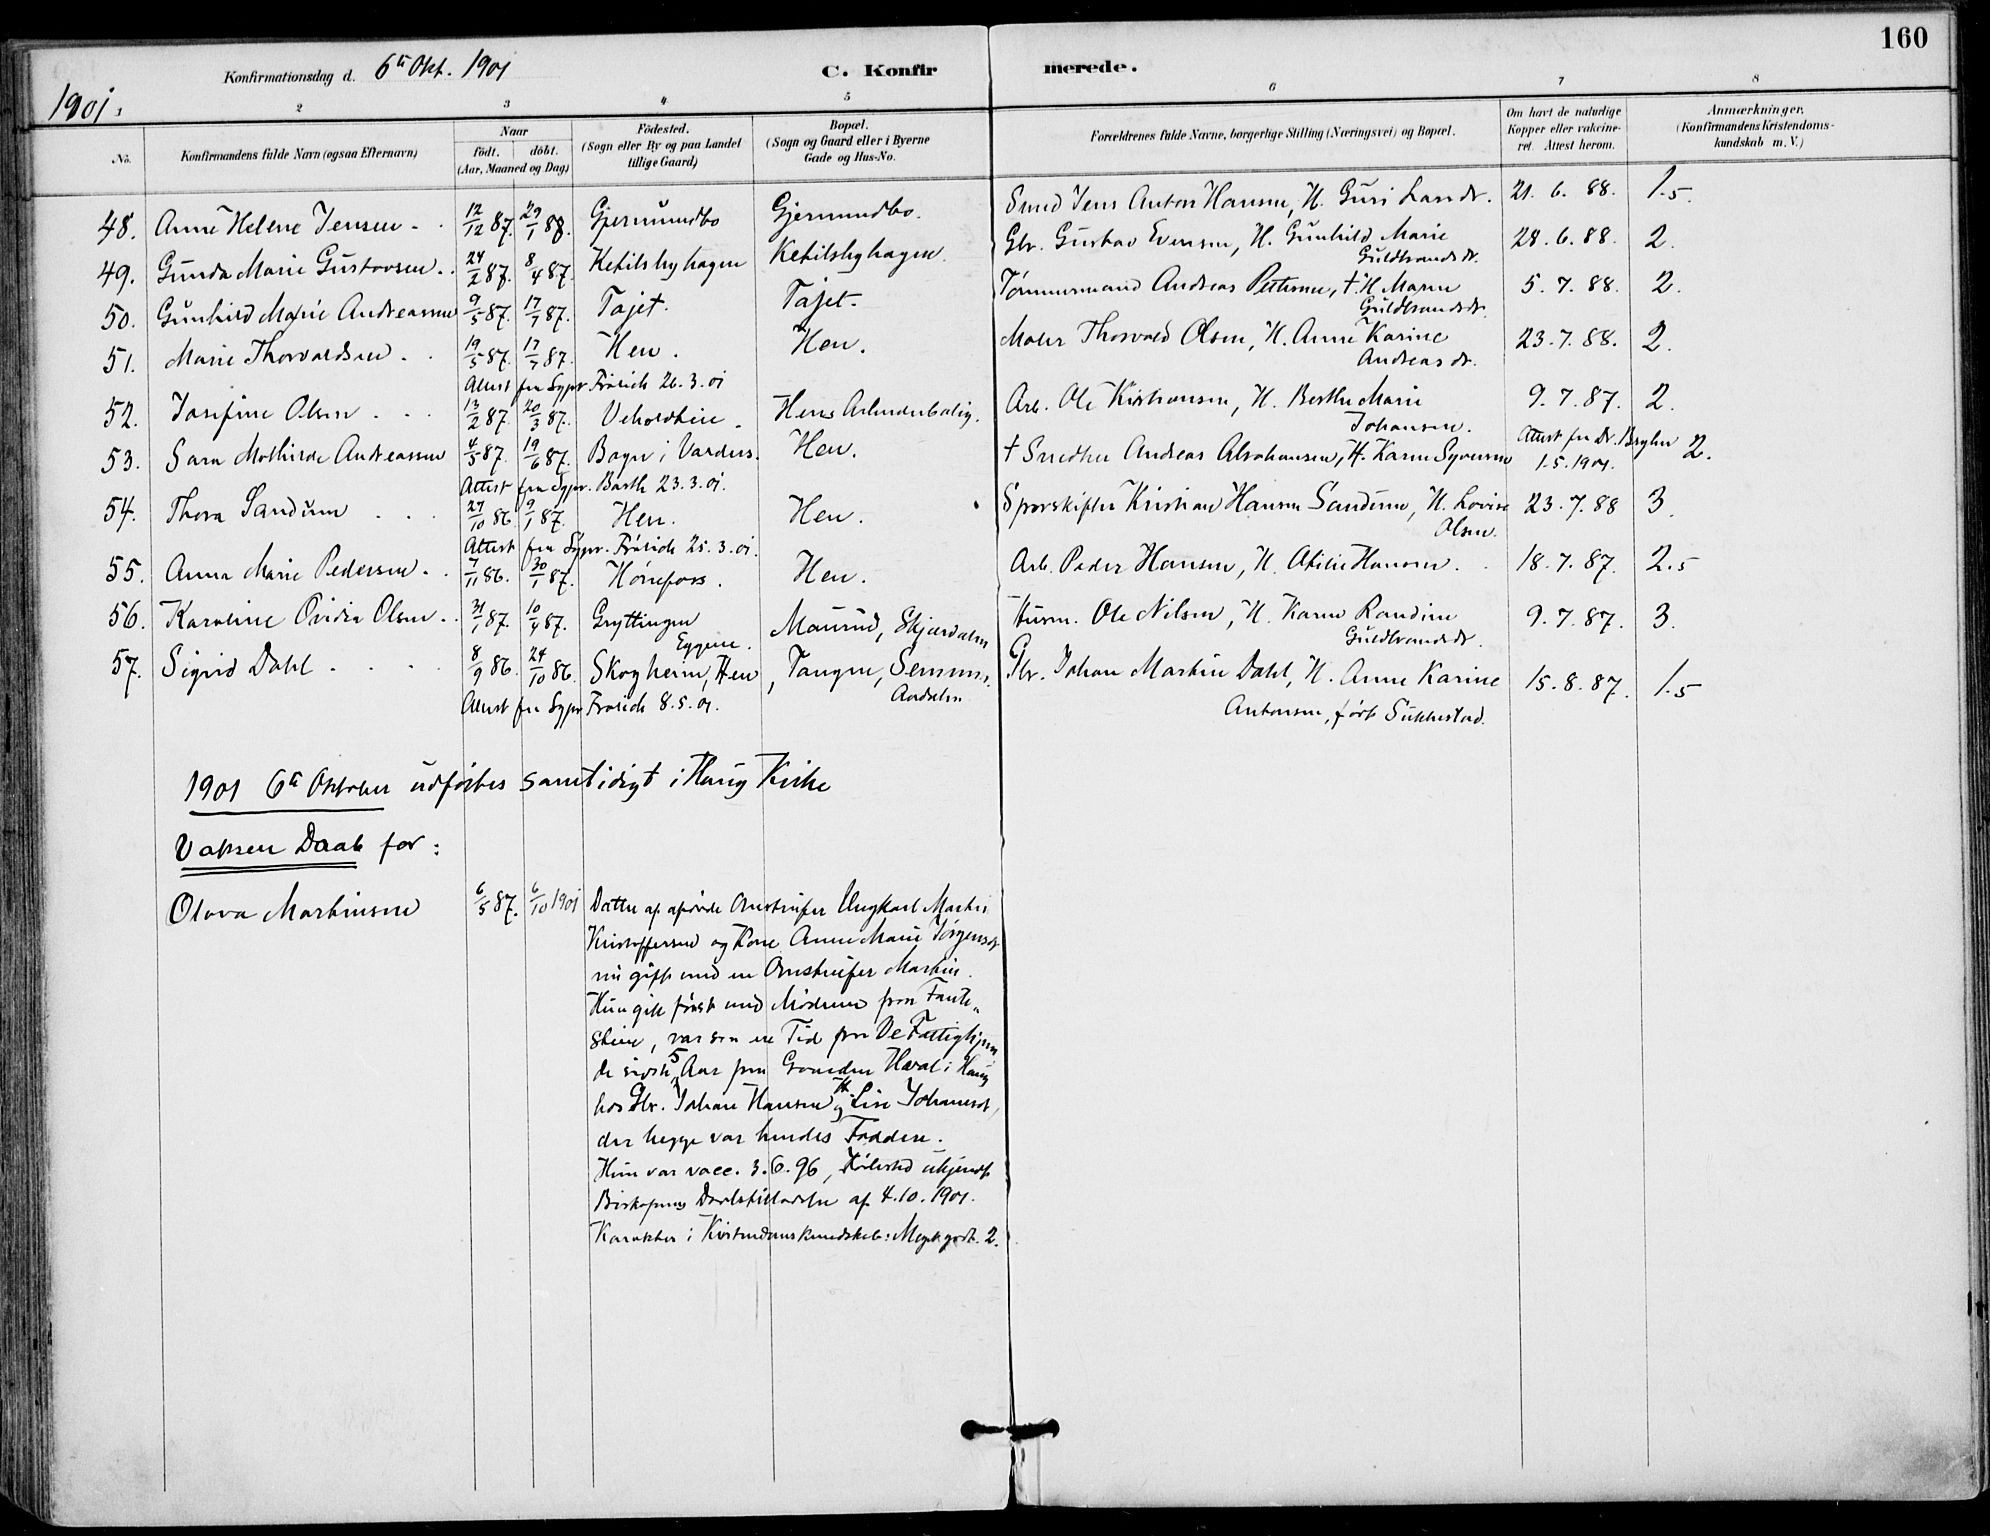 160
Konfirmationsdag d. 6te Okt. 1901 C. Konfirmerede.
1901.
2 3 4 5 6 7 8
No. Konfirmandens fulde Navn (ogsaa Efternavn) Naar født. døbt. (Aar, Maaned og Dag) Fødested. (Sogn eller By og paa Landet tillige Gaard) Bopæl. (Sogn og Gaard eller i Byerne Gade og Hus-No. Forældrenes fulde Navne, borgerlige Stilling (Næringsvei) og Bopæl. Om havt de naturlige Kopper eller vakcineret. Attest herom. Anmærkninger. (Konfirmandens Kristendomskundskab m. V.)
48. Anne Helene Jensen 12/12 87. 29/1 88. Gjermundbo Gjermundbo. Smed Jens Anton Hansen, H. Guri Larsdr. 21. 6. 88. 1.5.
49. Gunda Marie Gustavsen 24/2 87. 8/4 87. Ketilsbyhagen Ketilsbyhagen. Gbr. Gustav Evensen, H. Gunhild Marie Guldbrandsdr. 28. 6. 88. 2.
50. Gunhild Marie Andreassen 9/5 87. 17/7 87. Tajet. Tajet. Tømmermand Andreas Pettersen, † H. Maren Guldbrandsdr. 5. 7. 88. 2.
51. Marie Thorvaldsen 19/5 87. 17/7 87. Hen. Hen. Maler Thorvald Olsen, H. Anne Karine Andreasdr. 23. 7. 88. 2.
Attest fra Sgpr. Frølich 26. 3. 01
52. Josefine Olsen 13/2 87. 20/3 87. Veholdteie Hens Arbeiderbolig. Arb. Ole Kristiansen, H. Berthe Marie Johansen. 9. 7. 87. 2.
53. Sara Mathilde Andreassen 4/5 87. 19/6 87. Bagn i Valders. Hen. † Snedker Andreas Abrahamsen, H. Karen Syversen Attest fra Dr. 1.5.1901. 2.
Attest fra Sgpr. Barth 23. 3. 01.
54. Thora Sandum 27/10 86. 9/1 87. Hen. Hen. Sporskifter Kristian Hansen Sandum, H. Lovise Olsen. 23. 7. 88 3.
Attest fra Sgpr. Frølich 25. 3. 01.
55. Anna Marie Pedersen 7/11 86. 30/1 87. Hønefoss. Hen. Arb. Peder Hansen, H. Otilie Hansen. 18. 7. 87. 2.5
56. Karoline Ovidia Olsen 31/1 87. 10/4 87. Gryttingen Eggene. Maurud, Skjærdalen Husm. Ole Nilsen, H. Karen Randine Guldbrandsdr. 9. 7. 87. 3.
57. Sigrid Dahl 8/9 86. 24/10 86. Skogheim, Hen Tangen, Semmens, Aadalen Gbr. Johan Martin Dahl, H. Anne Karine Antonsen, født Sukkestad. 15. 8. 87. 1.5
Attest fra Sgpr. Frølich 8. 5. 01.
1901 6te Oktober udførtes samtidigt i Haug Kirke
Voksen Daab for:
Olava Martinsen 6/5 87. 6/10 1901 Datter af afdøde Omstreifer Ungkarl Martin
Kristoffersen og Kone Anne Marie Jørgensdr
nu gift med en Omstreifer Martin.
Hun gik først med Moderen paa Fante-
stiene, var saa en Tid paa De Fattighjem
de sidste 5 Aar paa Gaarden Hval i Haug
hos Gbr. Johan Hansen og H. Lise Johannesdr,
der begge var hendes Faddere.
Hun var vacc. 3. 6. 96, Fødested ukjendt
Biskopens Daabstilladelse af 4. 10. 1901.
Karakter i Kristendomskundskab: Meget godt. 2.